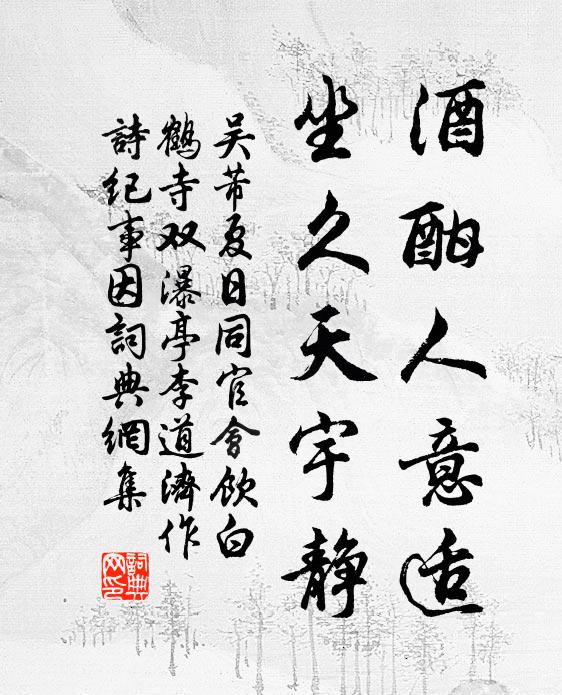 酒酣人意适
坐久天宇静
吴芾夏日同官會飲白
鶴寺双瀑亭李道濟作
詩纪事因詞典網集
詞典
网印